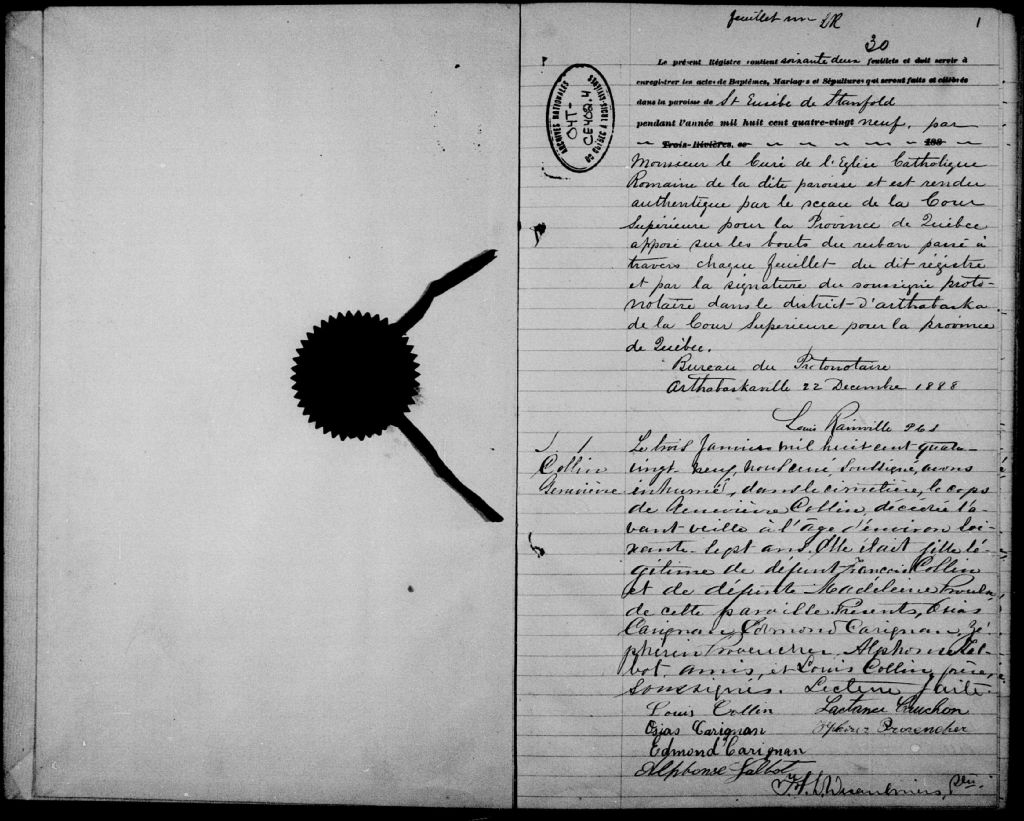 feuillet un LR
1
30
Le présent Régistre contient soixante deux feuillets et doit servir à
enregistrer les actes de Baptêmes, Mariages et Sépultures qui seront faits et célébrés
dans la paroisse de St Eusèbe de Stanfold
pendant l'année mil huit cent quatre-vingt neuf, par
Trois-Rivières, ce 188
Monsieur le Curé de l'Eglise Catholique
Romaine de la dite paroisse et est rendu
authentique par le sceau de la Cour
Supérieure pour la Province de Québec
apposé sur les bouts du ruban passé à
travers chaque feuillet du dit régistre
et par la signature du soussigné proto-
notaire dans le district d'arthabaska
de la Cour Superieure pour la province
de Québec.
Bureau du Protonotaire
Arthabaskaville 22 Decembre 1888
Louis Rainville
ARCHIVES NATIONALES
DU QUÉBEC À TROIS-RIVIÈRES
04T-
CE402.4
S 1
Collin
Geneviève
Le trois Janvier mil huit cent quatre-
vingt-neuf, nous curé soussigné, avons
inhumé, dans le cimetière, le corps
de Geneviève Collin, décédée l'a-
vant-veille à l'âge d'environ soi-
xante-sept ans. Elle était fille lé-
gitime de défunt François Collin
et de défunte Madeleine
de cette paroisse. Présents, Osias
Carignan, Edmond Carignan, Zé-
phirin Provencher, Alphonse Tal-
bot, amis, et Louis Collin, frère,
soussignés. Lecture faite.
Louis Collin Lactance Cruchon
Osias Carignan Provencher
Edmond Carignan
Alphonse Talbot